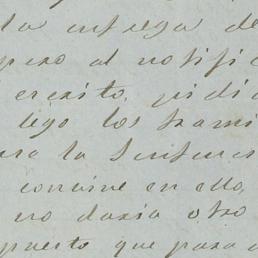 la entrega de
pero al notifi
escrito, pidi
ligo los trami
ra la Senten
convine en ello,
no daria otro
puerto que para